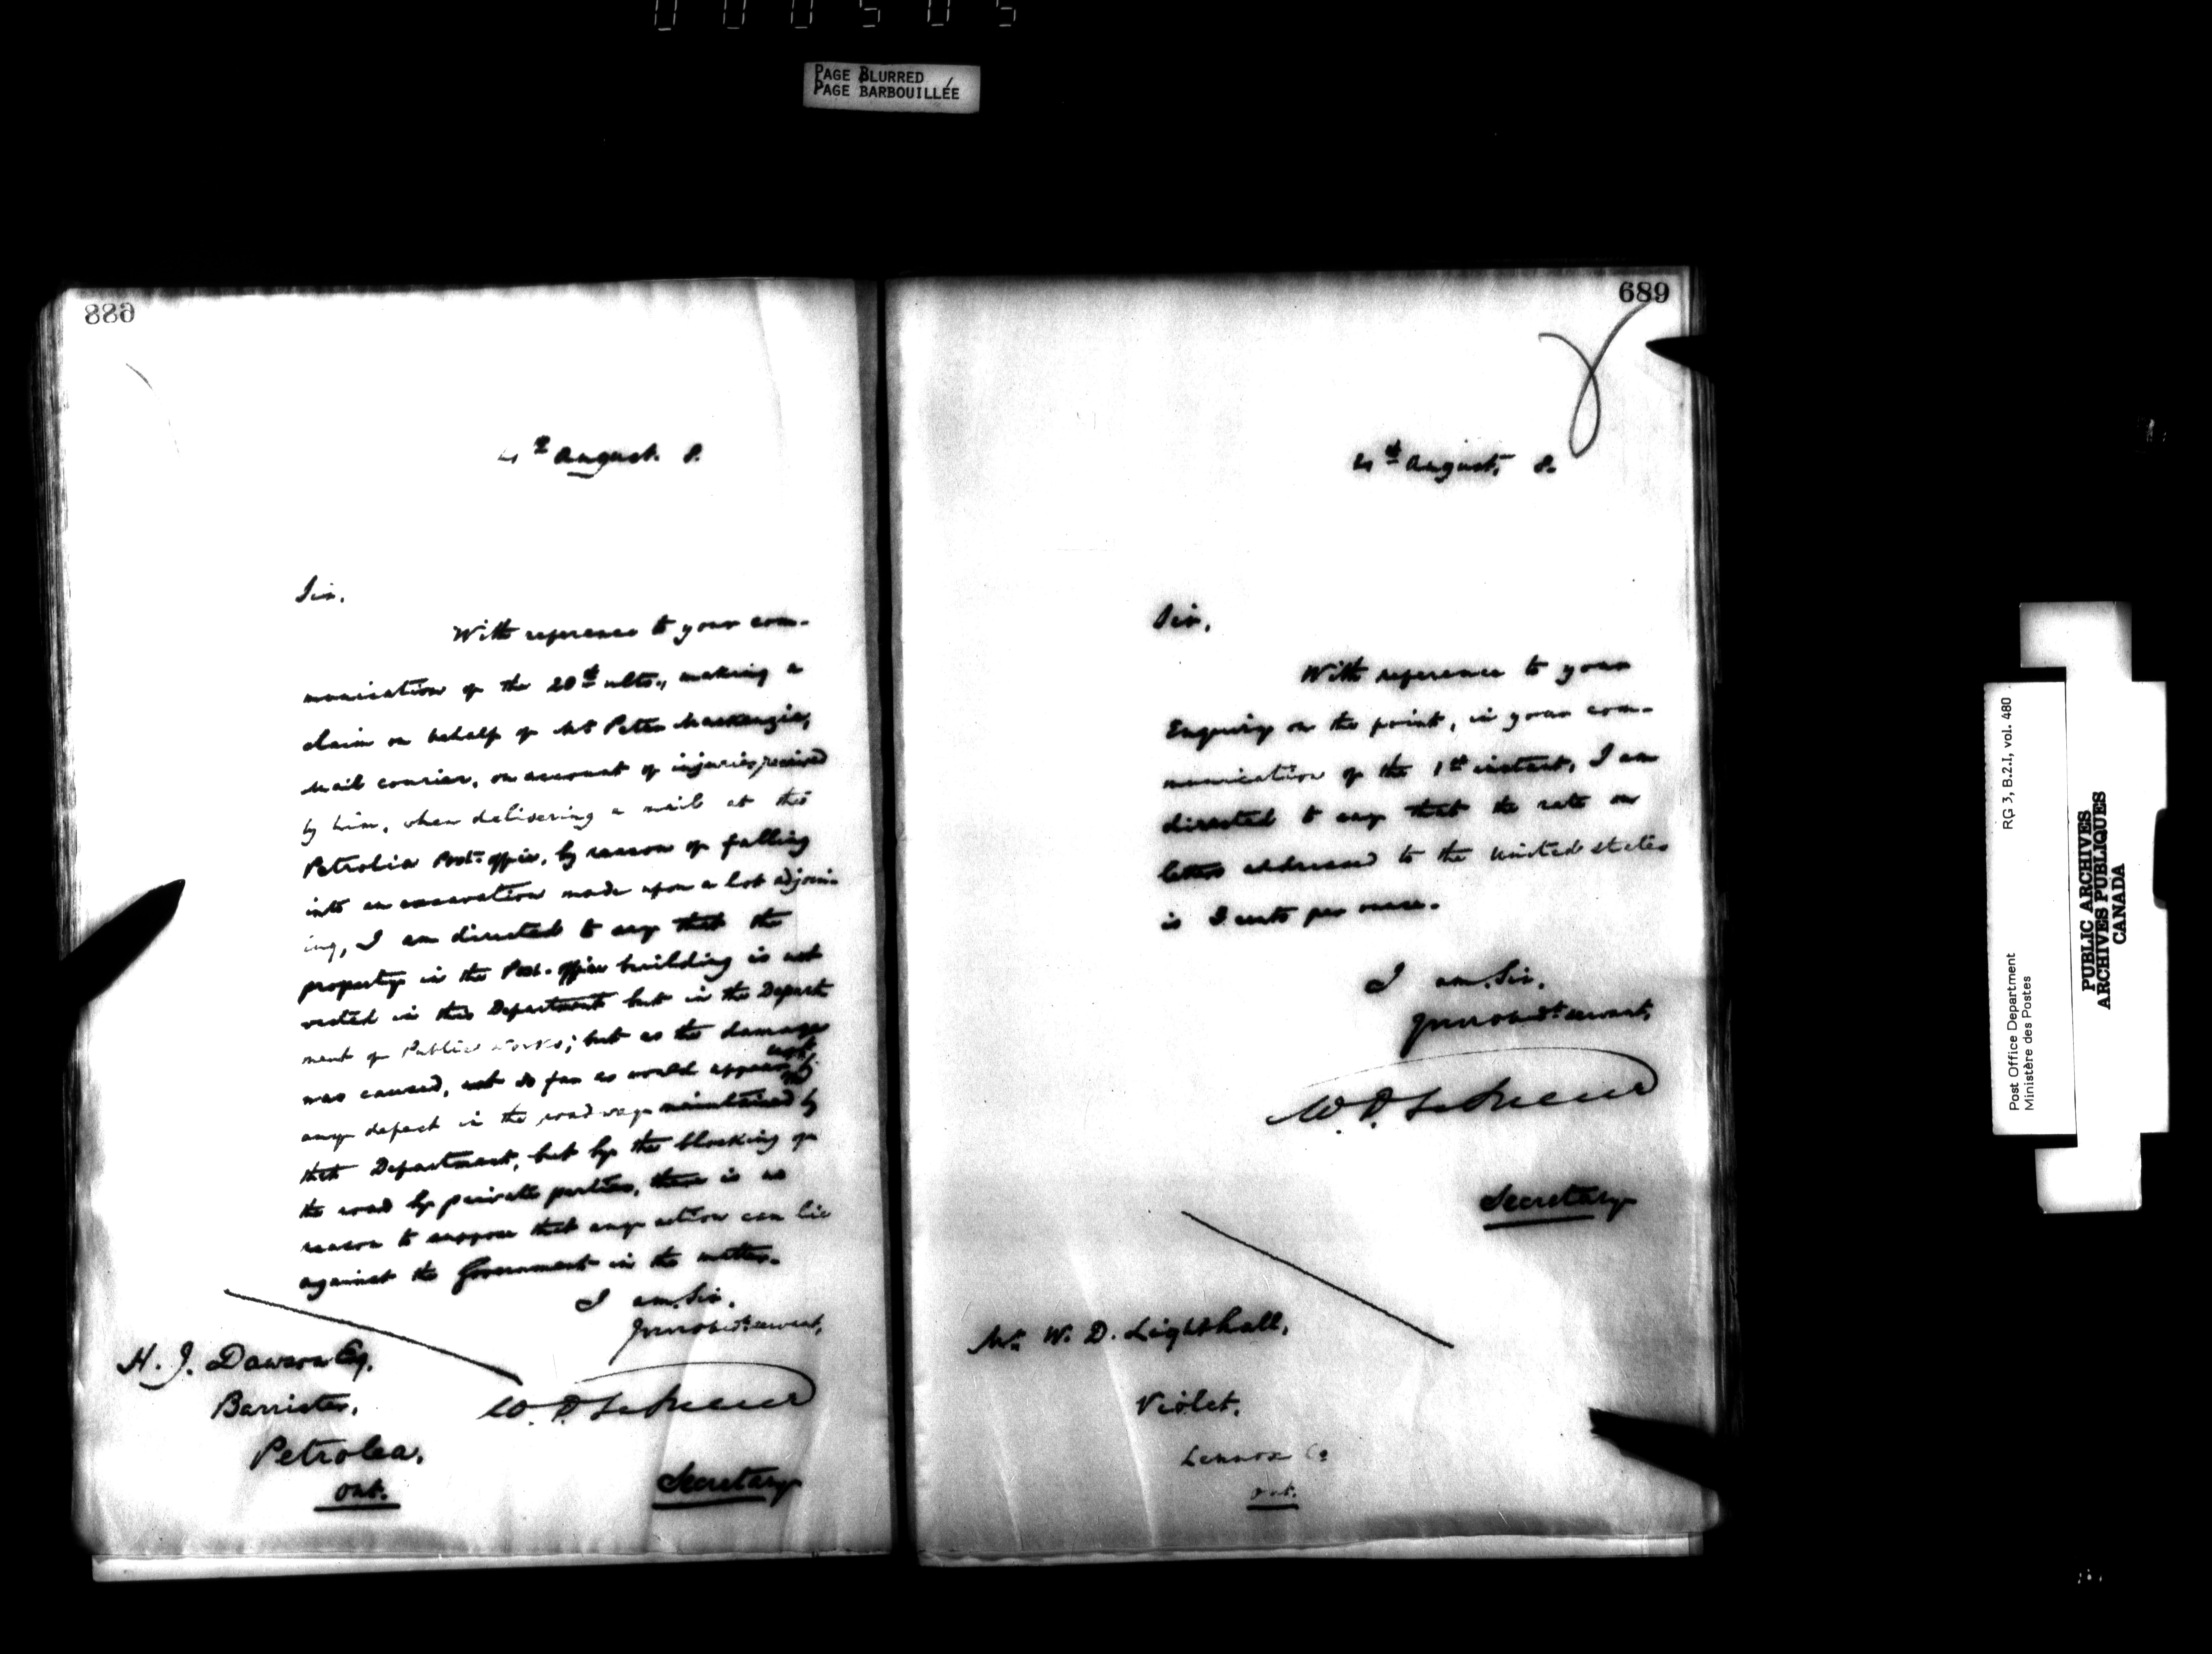 000505
PAGE BLURRED
PAGE BARBOUILLÉE
688
4th August. 8.
Sir,
With reference to your com-
munication of the 20th ulto., making a
claim on behalf of Mr Peter Mackenzie,
Mail courier, on account of injuries received
by him, when delivering a mail at the
Petrolia Post-office, by reason of falling
into an excavation made upon a lot adjoin-
ing, I am directed to say that the
property in the Post-office building is not
vested in this Department but in the Depart
ment of Public Works; but as the damage
was caused, not so far as would appear by
any defect in the roadway maintained by
that Department, but by the blocking of
the road by private parties, there is no
reason to suppose that any action can lie
against the Government in the matter.
I am, Sir,
Your obedt. servant,
W. D. LeSueur
Secretary
H. J. Dawson Esq.
Barrister,
Petrolea,
Ont.
689
4th August, 8.
Sir,
With reference to your
Enquiry on the point, in your com-
munication of the 1st instant, I am
directed to say that the rate on
letters addressed to the United States
is 3 cents per ounce.
I am, Sir,
Your obedt. servant,
W. D. LeSueur
Secretary
Mr. W. D. Lighthall,
Violet,
Lennox Co
Ont.
Post Office Department
Ministère des Postes
RG 3, B.2.I, vol. 480
PUBLIC ARCHIVES
ARCHIVES PUBLIQUES
CANADA